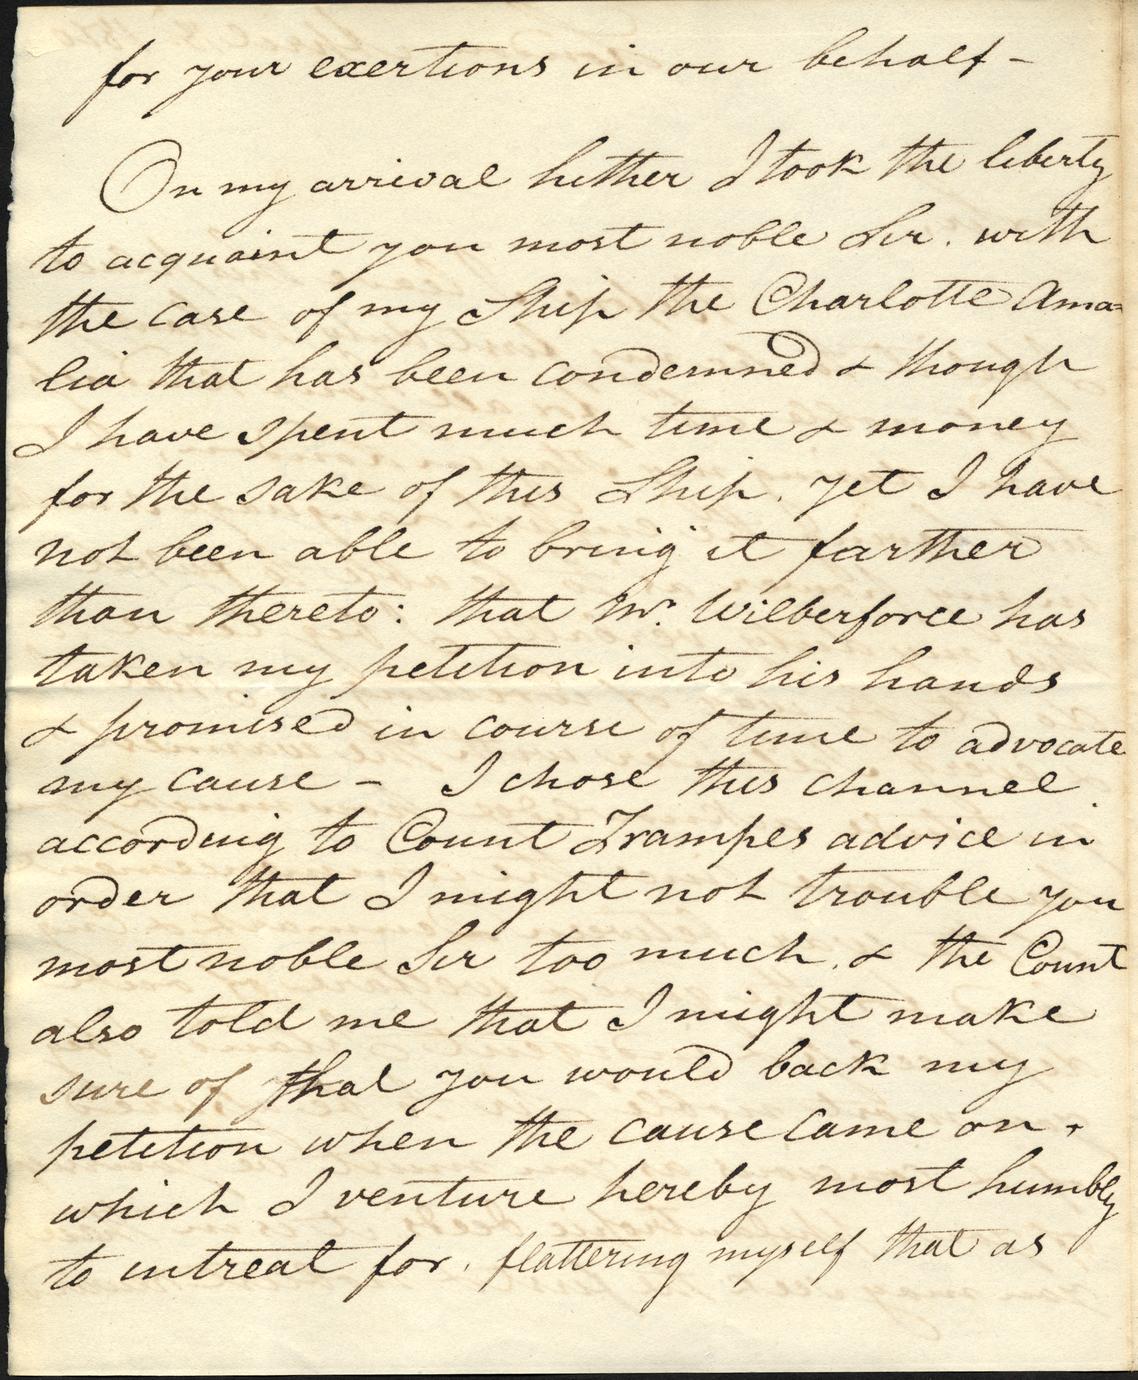 for your exertions in our behalf -
On my arrival hither I took the liberty
to acquaint you most noble Sir. with
the case of my Ship the Charlotte Ama-
lia that has been condemned & though
I have spent much time & money
for the sake of this Ship. yet I have
not been able to bring it farther
than thereto: that Mr. Wilberforce has
taken my petition into his hands
& promised in course of time to advocate
my cause - I chose this channel
according to Count Trampes advice in
order that I might not trouble you
most noble Sir too much. & the Count
also told me that I might make
sure of that you would back my
petition when the cause came on,
which I venture hereby most humbly
to intreat for. flattering myself that as